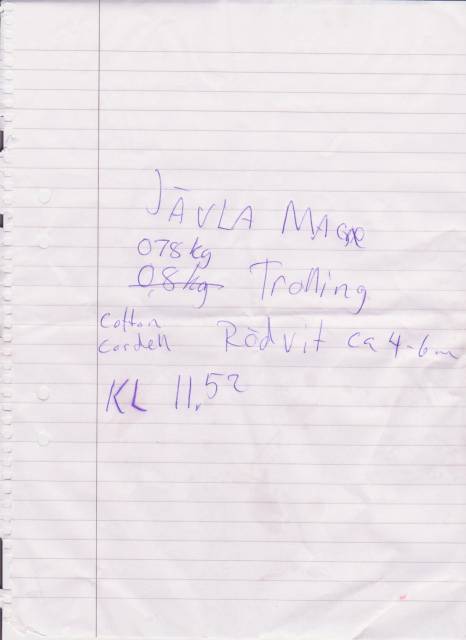 JÄVLA MAGNE
078kg
08kg Trolling
Cotton
Cordell Rödvit ca 4-6m
KL 11.52